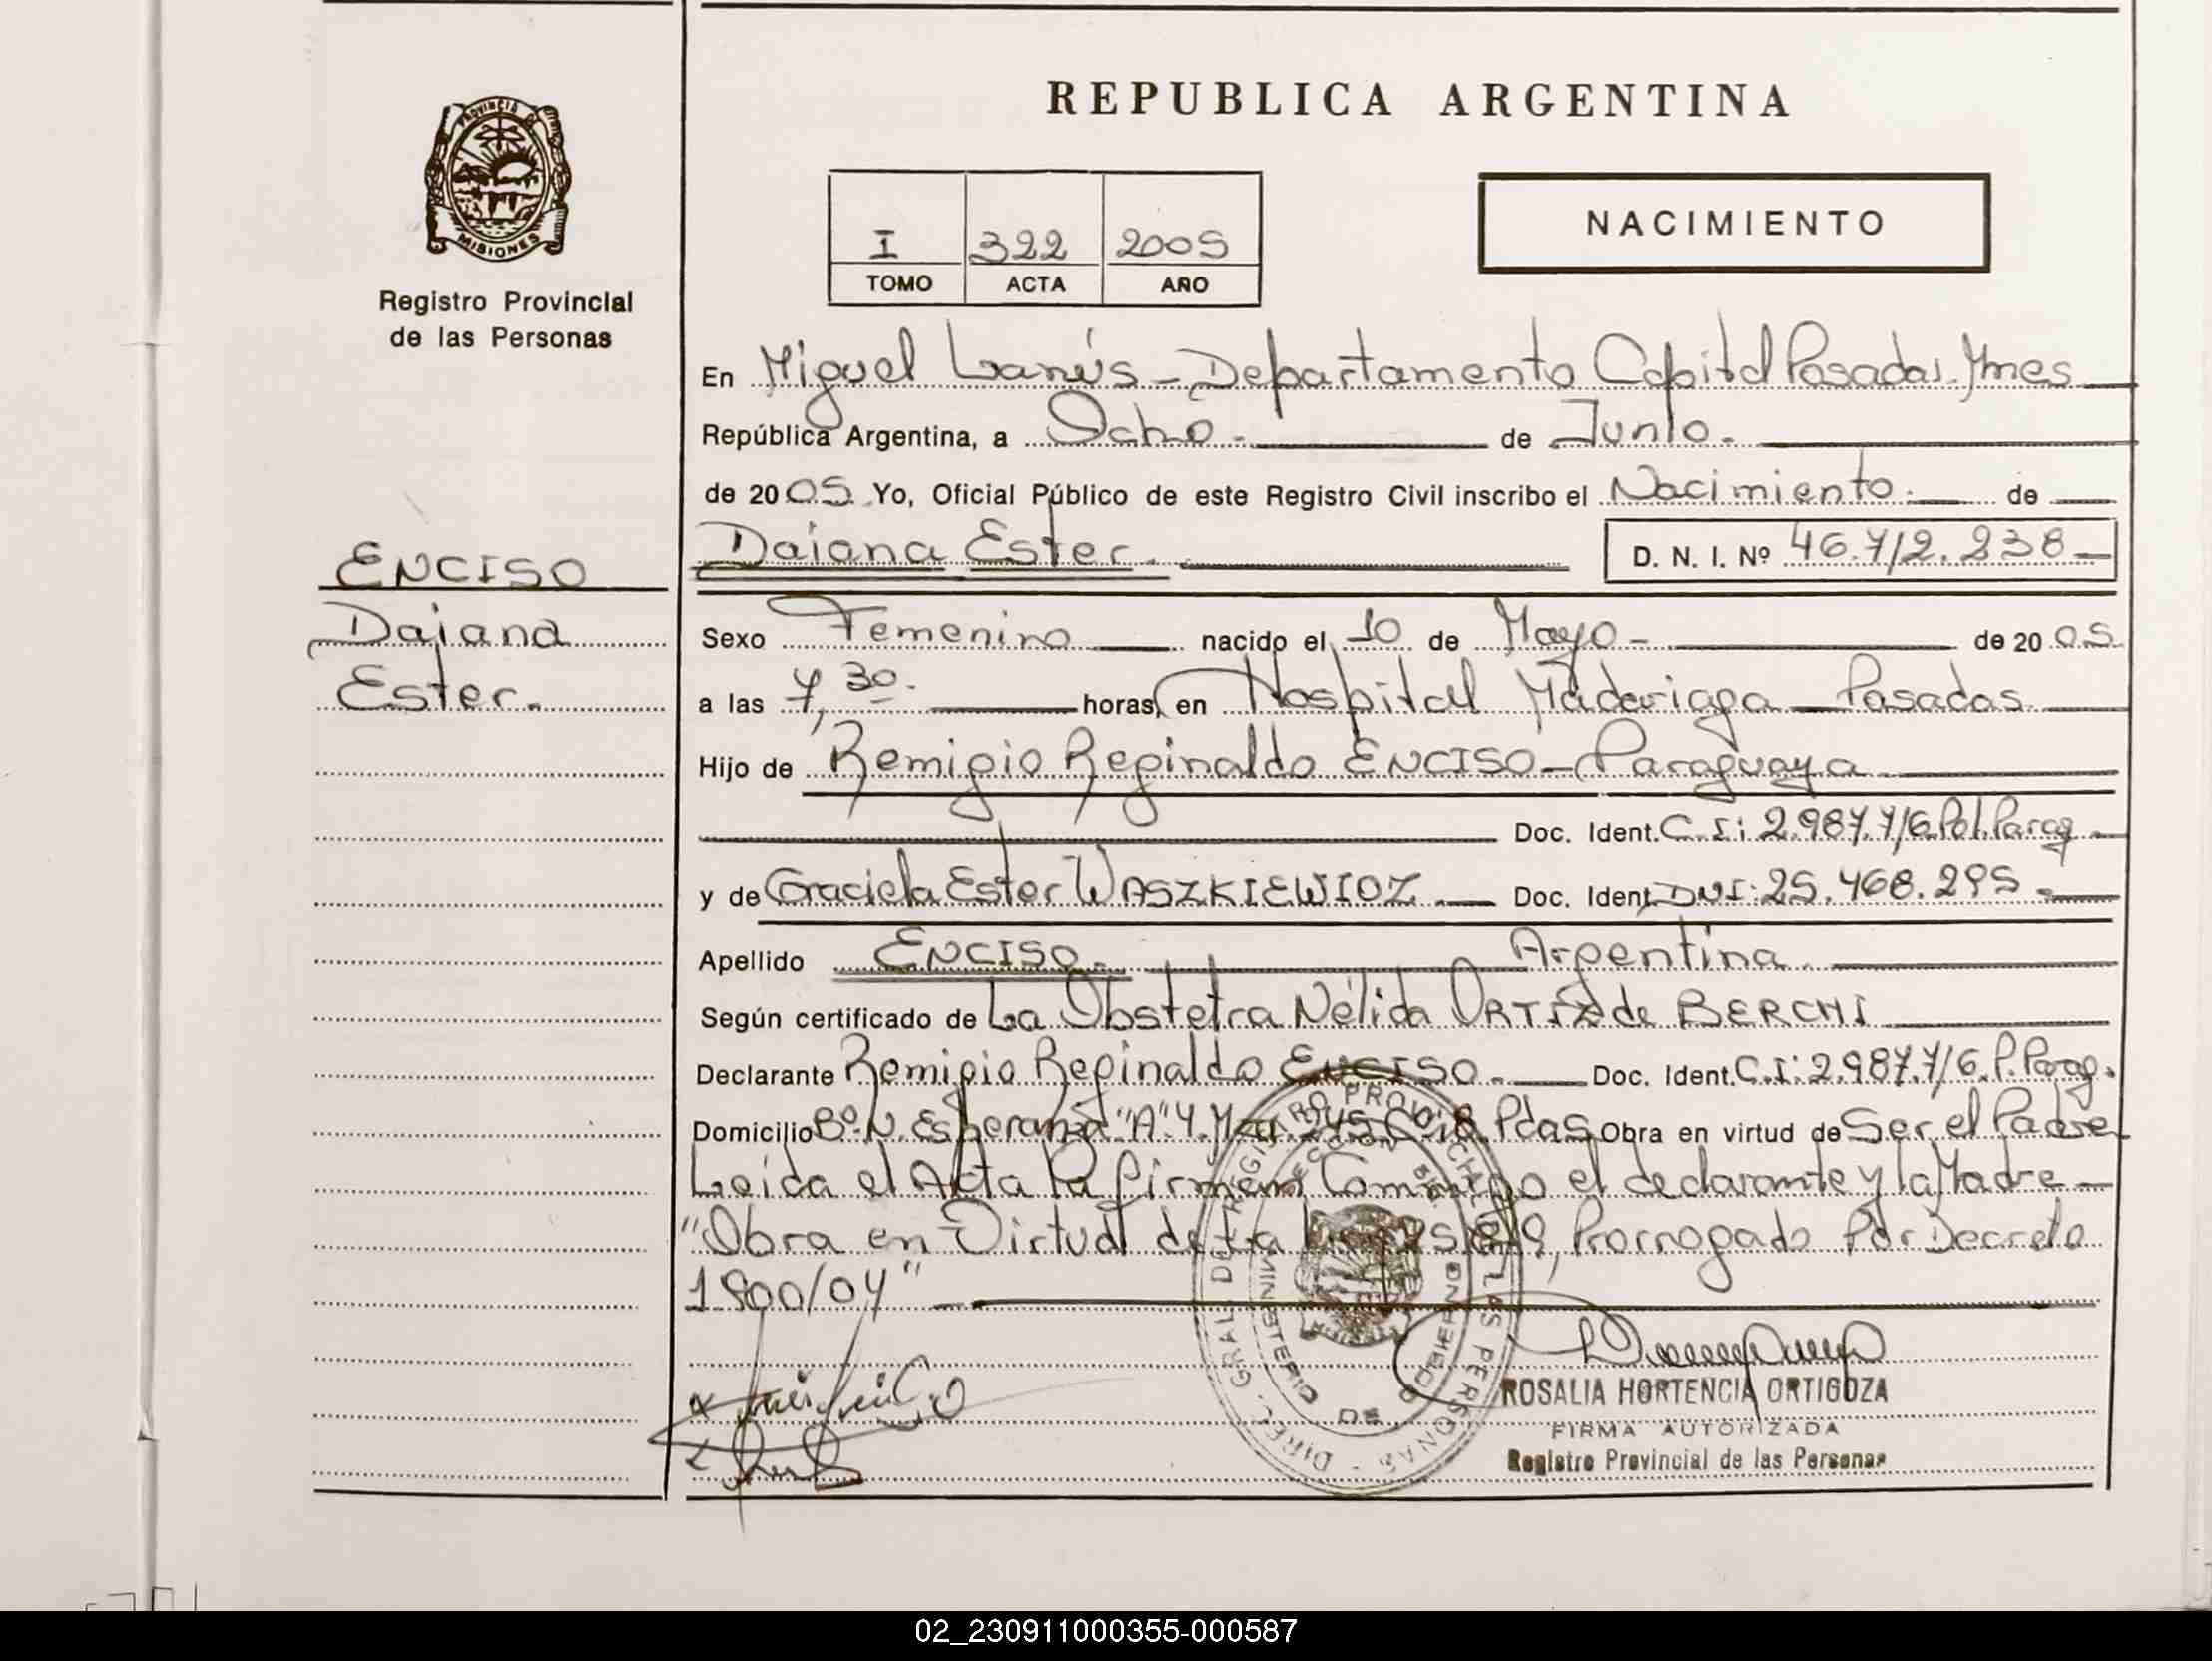 PROVINCIA DE
MISIONES
Registro Provincial
de las Personas
ENCISO
Daiana
Ester.
REPUBLICA ARGENTINA
NACIMIENTO
I 322 2005
TOMO ACTA AÑO
En Miguel Lanús - Departamento Capital Posadas. Mnes
República Argentina, a Ocho. de Junio.
de 2005. Yo, Oficial Público de este Registro Civil inscribo el Nacimiento. de
Daiana Ester. D. N. I. Nº 46.712.238
Sexo Femenino nacido el 10 de Mayo - de 2005.
a las 7,30. horas, en Hospital Madariaga - Posadas
Hijo de Remigio Reginaldo ENCISO - Paraguaya
Doc. Ident. C.I: 2.987.716 Pol. Parag
y de Graciela Ester WASZKIEWIOZ. Doc. Ident. DNI: 25.468.295.
Apellido ENCISO. Argentina.
Según certificado de La Obstetra Nélida ORTIZ de BERCHI
Declarante Remigio Reginaldo ENCISO. Doc. Ident. C.I: 2.987.716. P. Parag.
Domicilio Bº. N. Esperanza "A" 4. C. 18. Pdas Obra en virtud de Ser el Padre
Leida el Acta la firman Conmigo el declarante y la Madre -
"Obra en Virtud de La Prorrogado Por Decreto
1900/04"
DIREC. GRAL. DE REGISTRO PROVINCIAL DE LAS PERSONAS
MINISTERIO DE GOBIERNO
ROSALIA HORTENCIA ORTIGOZA
FIRMA AUTORIZADA
Registro Provincial de las Personas
02_230911000355-000587